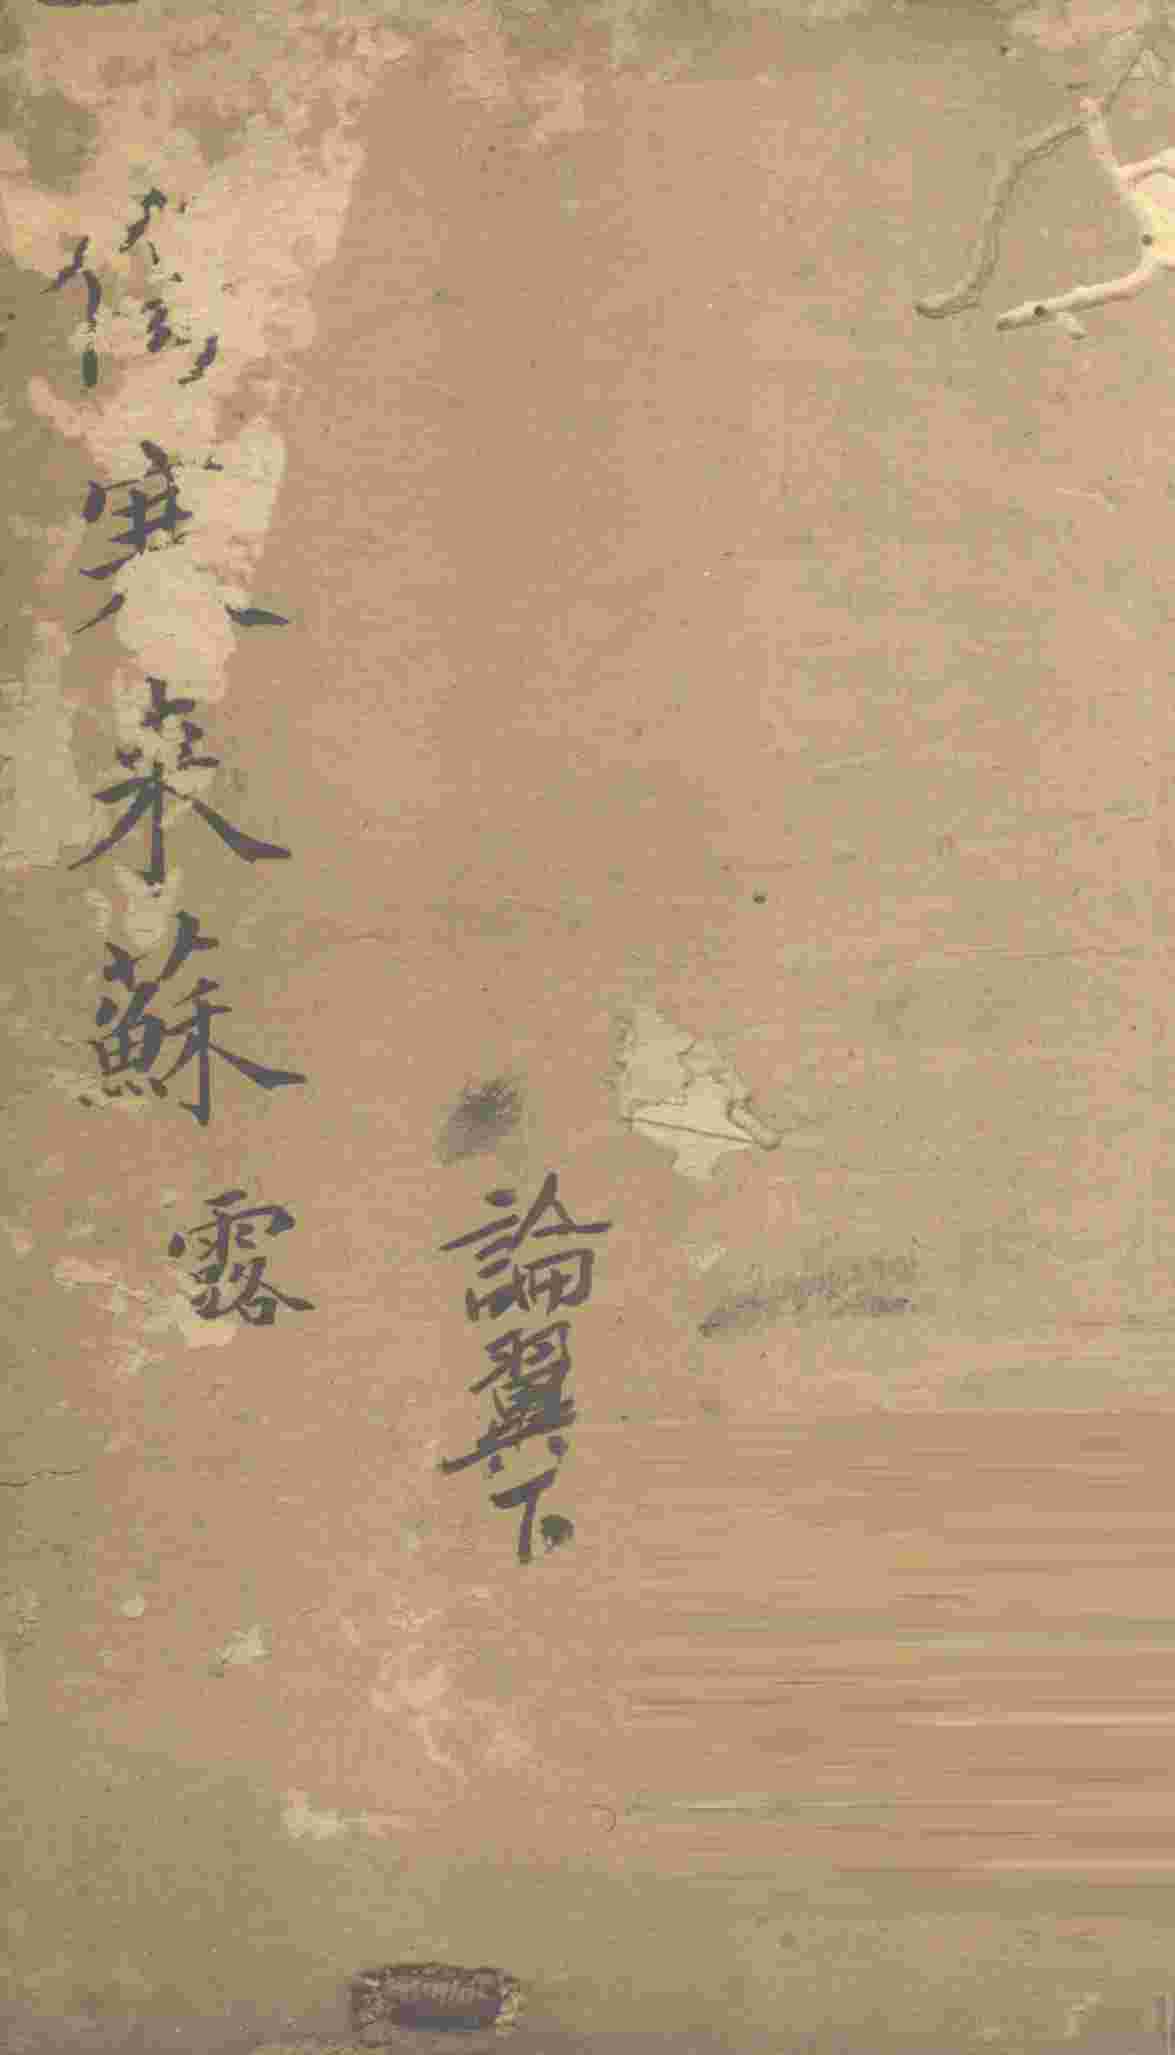 論翼下
傷寒來蘇露